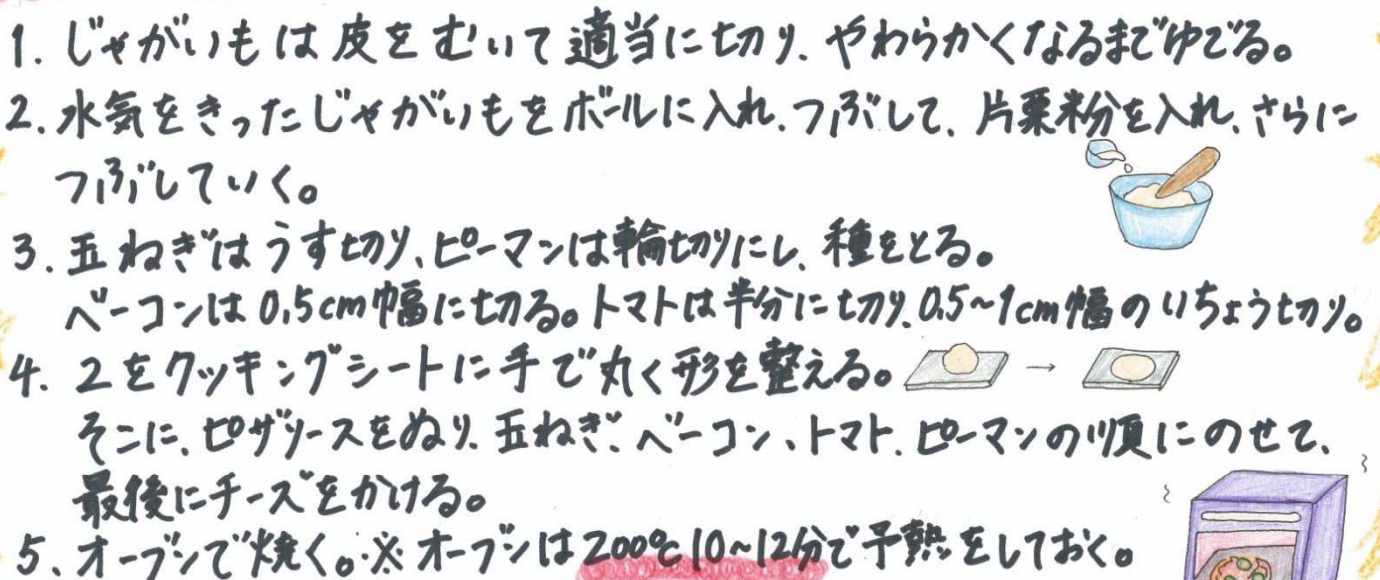 1. じゃがいもは皮をむいて適当に切り、やわらかくなるまでゆでる。
2. 水気をきったじゃがいもをボールに入れ、つぶして、片栗粉を入れ、さらに
つぶしていく。
3. 玉ねぎはうす切り、ピーマンは輪切りにし、種をとる。
ベーコンは0.5cm幅に切る。トマトは半分に切り、0.5~1cm幅のいちょう切り。
4. 2をクッキングシートに手で丸く形を整える。
そこに、ピザソースをぬり、玉ねぎ、ベーコン、トマト、ピーマンの順にのせて、
最後にチーズをかける。
5、オーブンで焼く。※オーブンは200℃10~12分で予熱をしておく。